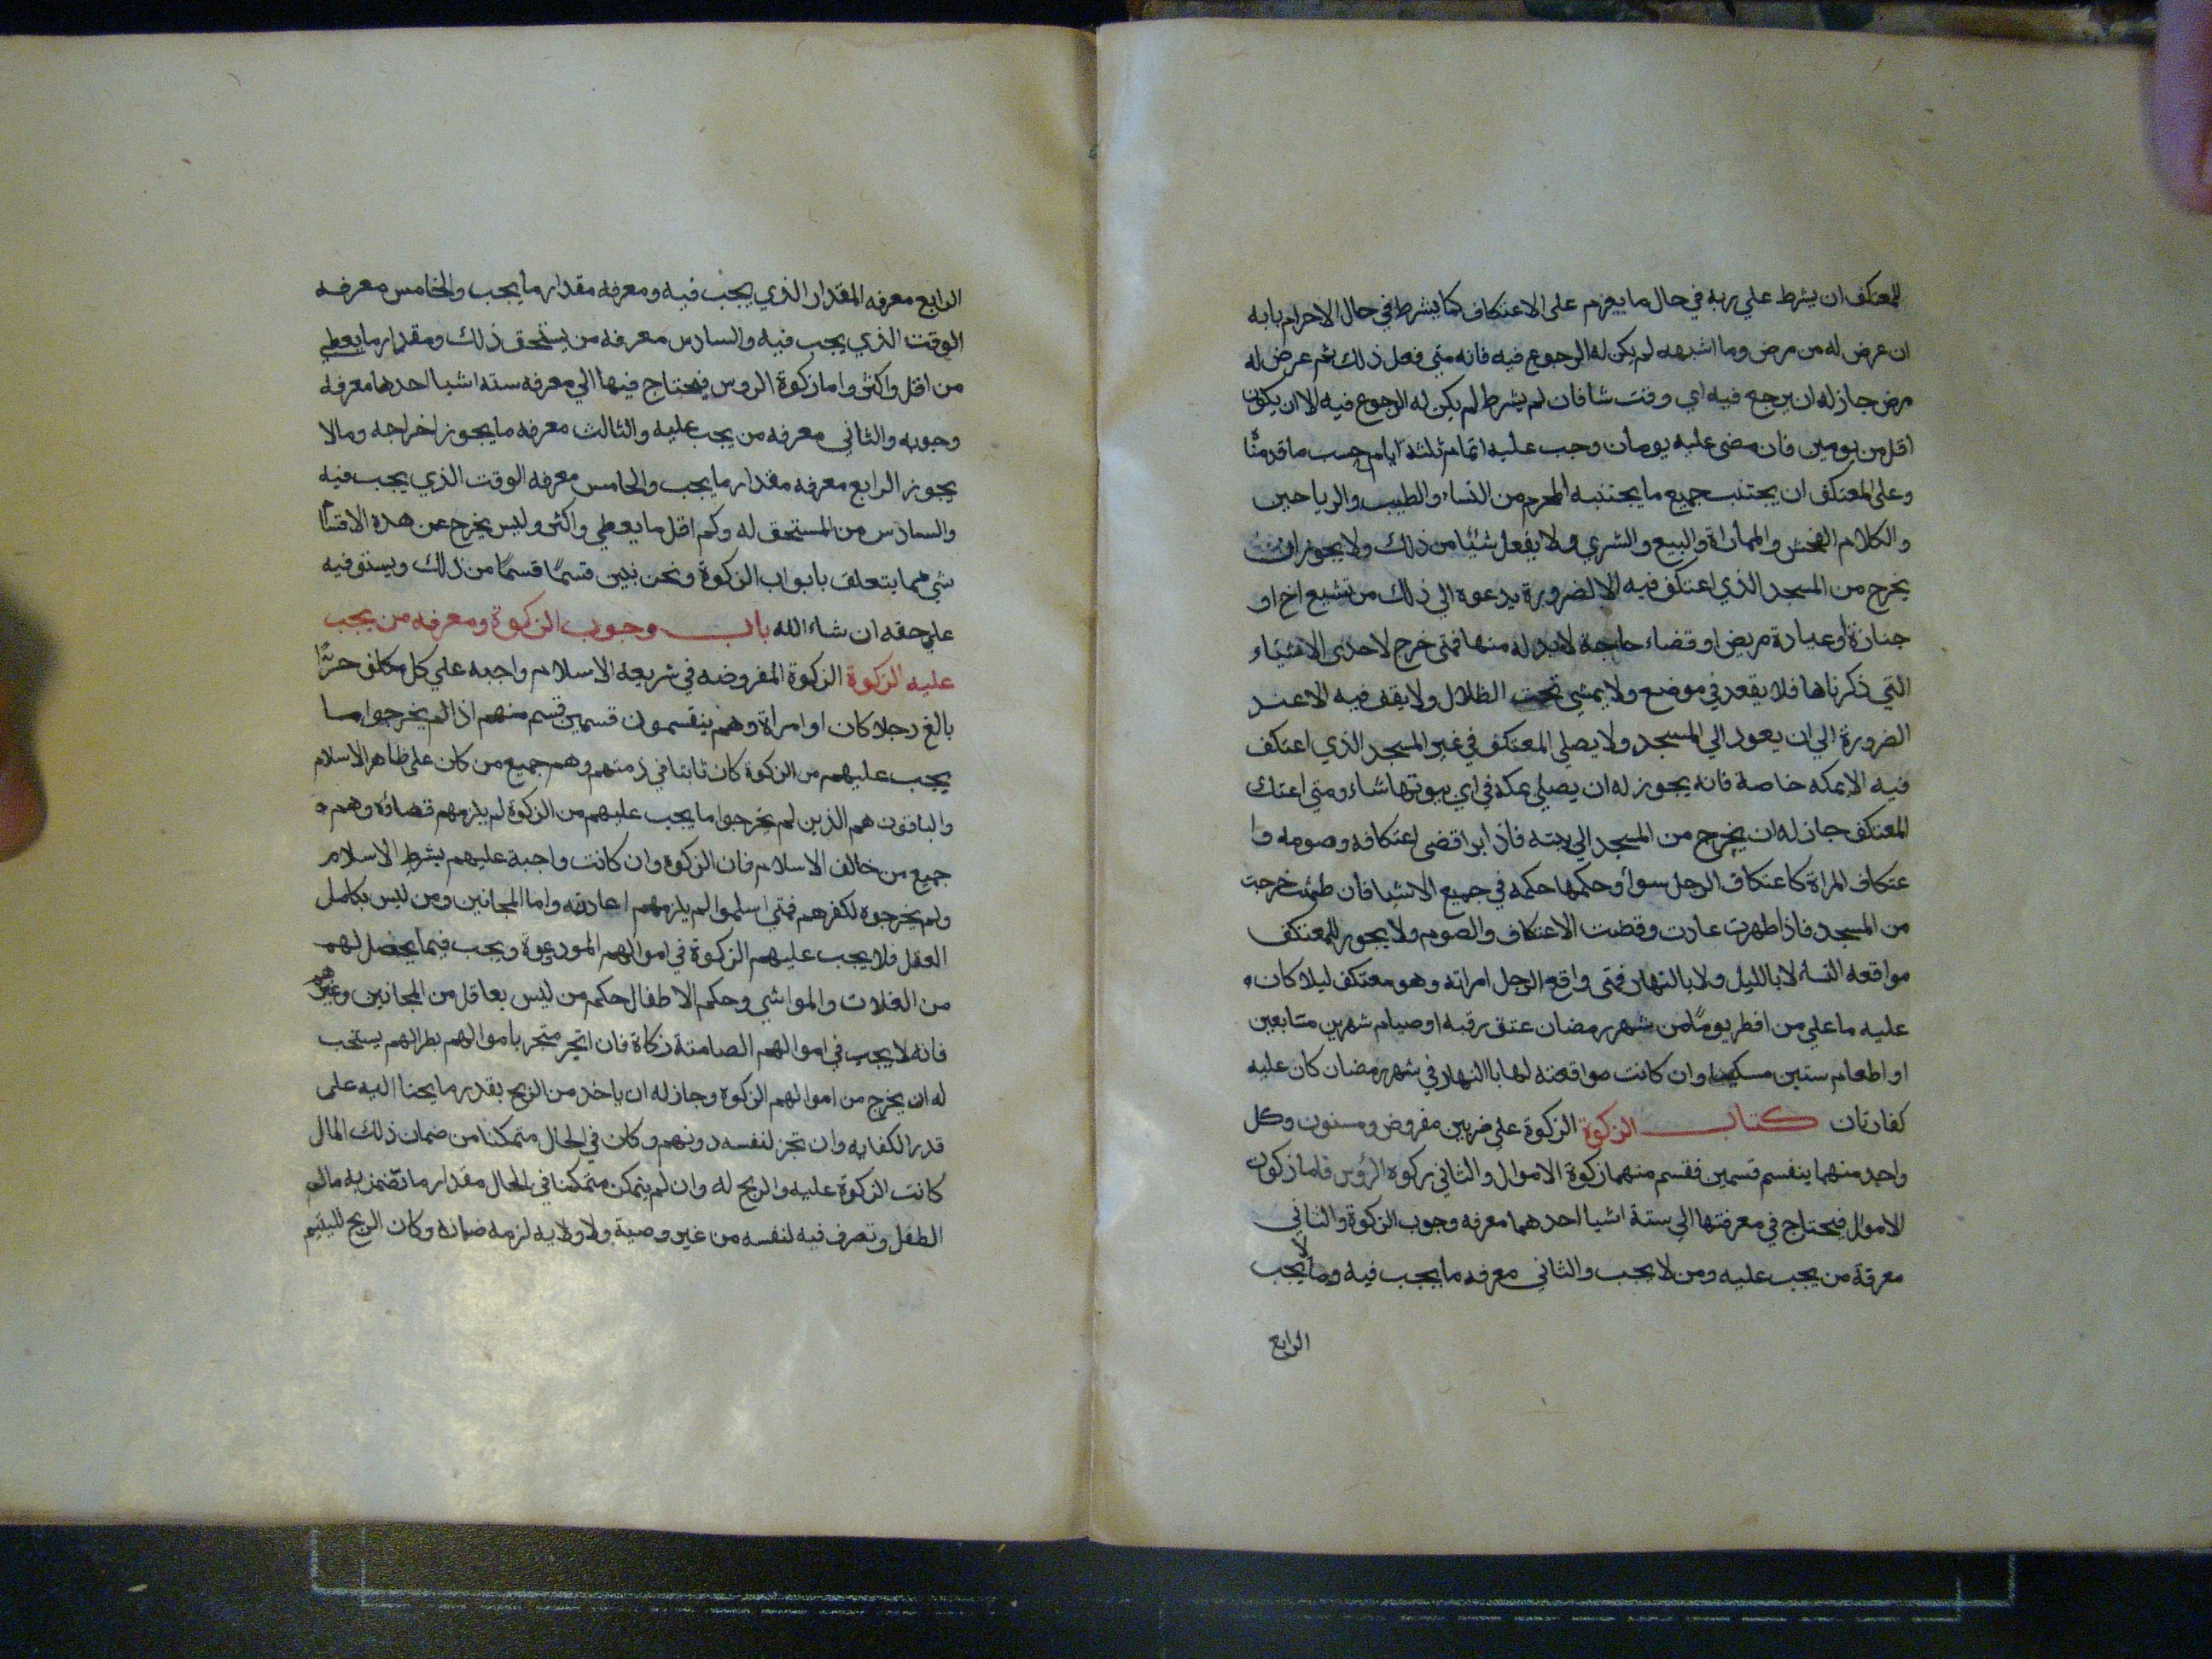 للمعتكف ان يشرط علي ربه في حال ما يعزم على الاعتكاف كما يشرط في حال الاحرام بابه
ان عرض له من مرض وما اشبهه لم يكن له الرجوع فيه فانه متي فعل ذلك ثم عرض له
مرض جاز له ان يرجع فيه اي وقت شا فان لم يشرط لم يكن له الرجوع فيه الا ان يكون
اقل من يومين فان مضى عليه يومان وجب عليه اتمام ثلثة ايام حسب ما قدمناه
وعلى المعتكف ان يجتنب جميع ما يجتنبه المحرم من النساء والطيب والرياحين
والكلام الفحش والمماراة والبيع والشري ولا يفعل شيئا من ذلك ولا يجوز ان
يخرج من المسجد الذي اعتكف فيه الا لضرورة يدعوه الي ذلك من تشيع اخ او
جنازة او عيادة مريض او قضاء حاجة لابد له منها فمتي خرج لاحدى الاشياء
التي ذكرناها فلا يقعد في موضع ولا يمشي تحت الظلال ولا يقف فيه الا عند
الضرورة الي ان يعود الي المسجد ولا يصلي المعتكف في غير المسجد الذي اعتكف
فيه الا بمكه خاصة فانه يجوز له ان يصلي بمكه في اي بيوتها شاء ومتي اعتك
المعتكف جاز له ان يخرج من المسجد الي بيته فاذا برا قضى اعتكافه وصومه وا
عتكاف المراة كاعتكاف الرجل سواء وحكمها حكمه في جميع الاشيا فان طمثت خرجت
من المسجد فاذا طهرت عادت وقضت الاعتكاف والصوم ولا يجوز للمعتكف
مواقعه النسا لا بالليل ولا بالنهار فمتى واقع الرجل امراته وهو معتكف ليلا كان
عليه ما علي من افطر يومًا من شهر رمضان عتق رقبه او صيام شهرين متتابعين
او اطعام ستين مسكينا وان كانت مواقعته لها باالنهار في شهر رمضان كان عليه
كفارتان كتاب الزكوة الزكوة علي ضربين مفروض ومسنون وكل
واحد منهما ينقسم قسمين فقسم منهما زكوة الاموال والثاني زكوه الرؤس فاما زكوت
للاموال فيحتاج في معرفتها الي ستة اشيا احدهما معرفه وجوب الزكوة والثاني
معرفة من يجب عليه ومن لا يجب والثاني معرفه ما يجب فيه وما لا يجب
الرابع
الرابع معرفه المقدار الذي يجب فيه ومعرفه مقدار ما يجب والخامس معرفه
الوقت الذي يجب فيه والسادس معرفه من يستحق ذلك ومقدار ما يعطي
من اقل واكثر واما زكوة الروس فيحتاج فيها الي معرفه سته اشيا احدها معرفه
وجوبه والثاني معرفه من يجب عليه والثالث معرفه ما يجوز اخراجه وما لا
يجوز الرابع معرفه مقدار ما يجب والخامس معرفه الوقت الذي يجب فيه
والسادس من المستحق له وكم اقل ما يعطي واكثر وليس يخرج عن هذه الاقسام
شي مما يتعلق بابواب الزكوة ونحن نبين قسمًا قسمًا من ذلك ويستوفيه
علي حقه ان شاء الله باب وجوب الزكوة ومعرفه من يجب
عليه الزكوة الزكوة المفروضه في شريعه الاسلام واجبه علي كل مكلف حر
بالغ رجلا كان او امراة وهم ينقسمون قسمين قسم منهم اذا لم يخرجوا ما
يجب عليهم من الزكوة كان ثابتا في ذمتهم وهم جميع من كان على ظاهر الاسلام
والباقون هم الذين لم يخرجوا ما يجب عليهم من الزكوة لم يلزمهم قضاؤه وهم
جميع من خالف الاسلام فان الزكوة وان كانت واجبة عليهم بشرط الاسلام
ولم يخرجوه لكفرهم فمتي اسلموا لم يلزمهم اعادته واما المجانين ومن ليس بكامل
العقل فلا يجب عليهم الزكوة في اموالهم المودوعة ويجب فيما يحصل لهم
من الغلات والمواشي وحكم الاطفال حكم من ليس بعاقل من المجانين وغيرهم
فانه لا يجب في اموالهم الصامتة زكاة فان اتجر متجر باموالهم بطرا لهم يستحب
له ان يخرج من اموالهم الزكوة وجاز له ان ياخذ من الربح بقدر ما يحتا اليه على
قدر الكفايه وان تجر لنفسه دونهم وكان في الحال متمكنا من ضمان ذلك المال
كانت الزكوة عليه والربح له وان لم يتمكن متمكنا في الحال مقدار ما تضمن به مال
الطفل وتصرف فيه لنفسه من غير وصية ولا ولايه لزمه ضمانه وكان الربح لليتيم